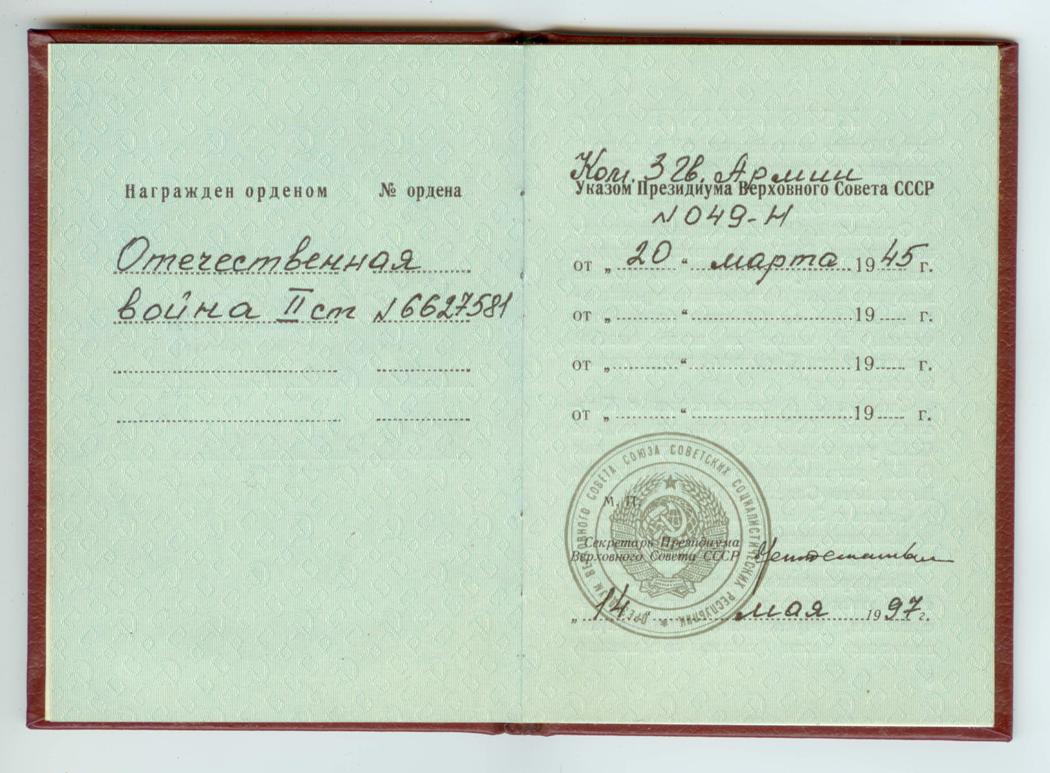 Награжден орденом № ордена
Отечественная
война II ст №6627581
Ком. 3 Гв. Армии
Указом Президиума Верховного Совета СССР
№ 049-Н
от „ 20 “ марта 19 45 г.
от „ “ 19 г.
от „ “ 19 г.
от „ “ 19 г.
ПРЕЗИДИУМ ВЕРХОВНОГО СОВЕТА СОЮЗА СОВЕТСКИХ СОЦИАЛИСТИЧЕСКИХ РЕСПУБЛИК
М. П.
Секретарь Президиума
Верховного Совета СССР
„ 14 “ мая 19 97 г.